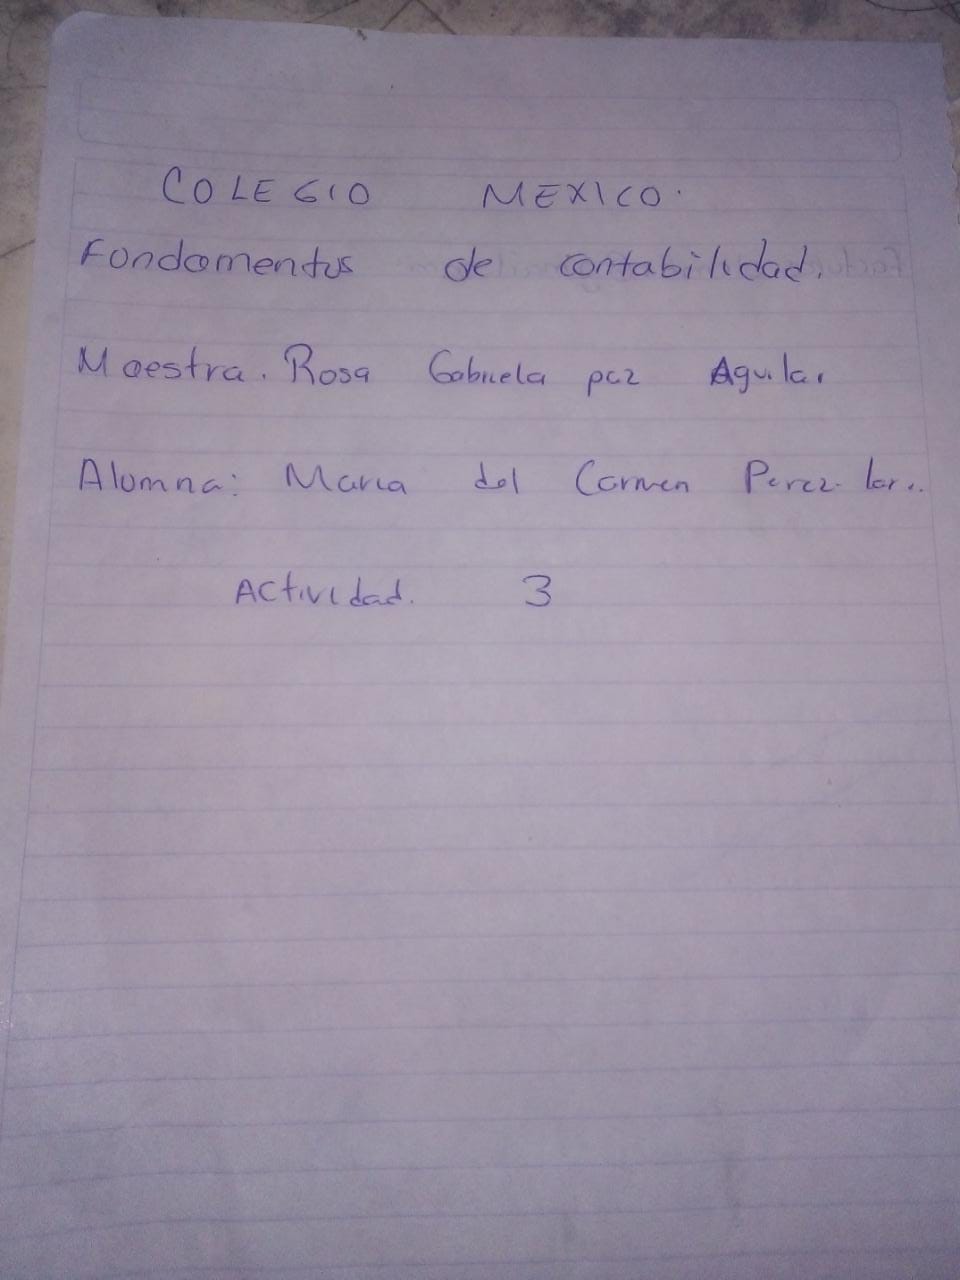 COLEGIO MEXICO.
Fondamentos de contabilidad.
Maestra. Rosa Gabriela paz Aguilar
Alumna: Maria del Carmen Perez
Actividad. 3